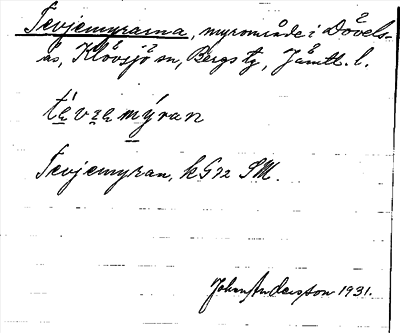 Tevjemyrarna, myrområde i Dövels-
ås, Klövsjö sn, Bergs tg, Jämtl. l.
tęvzę mýran
Tevjemyran, k G 72 SM.
John Andersson 1931.